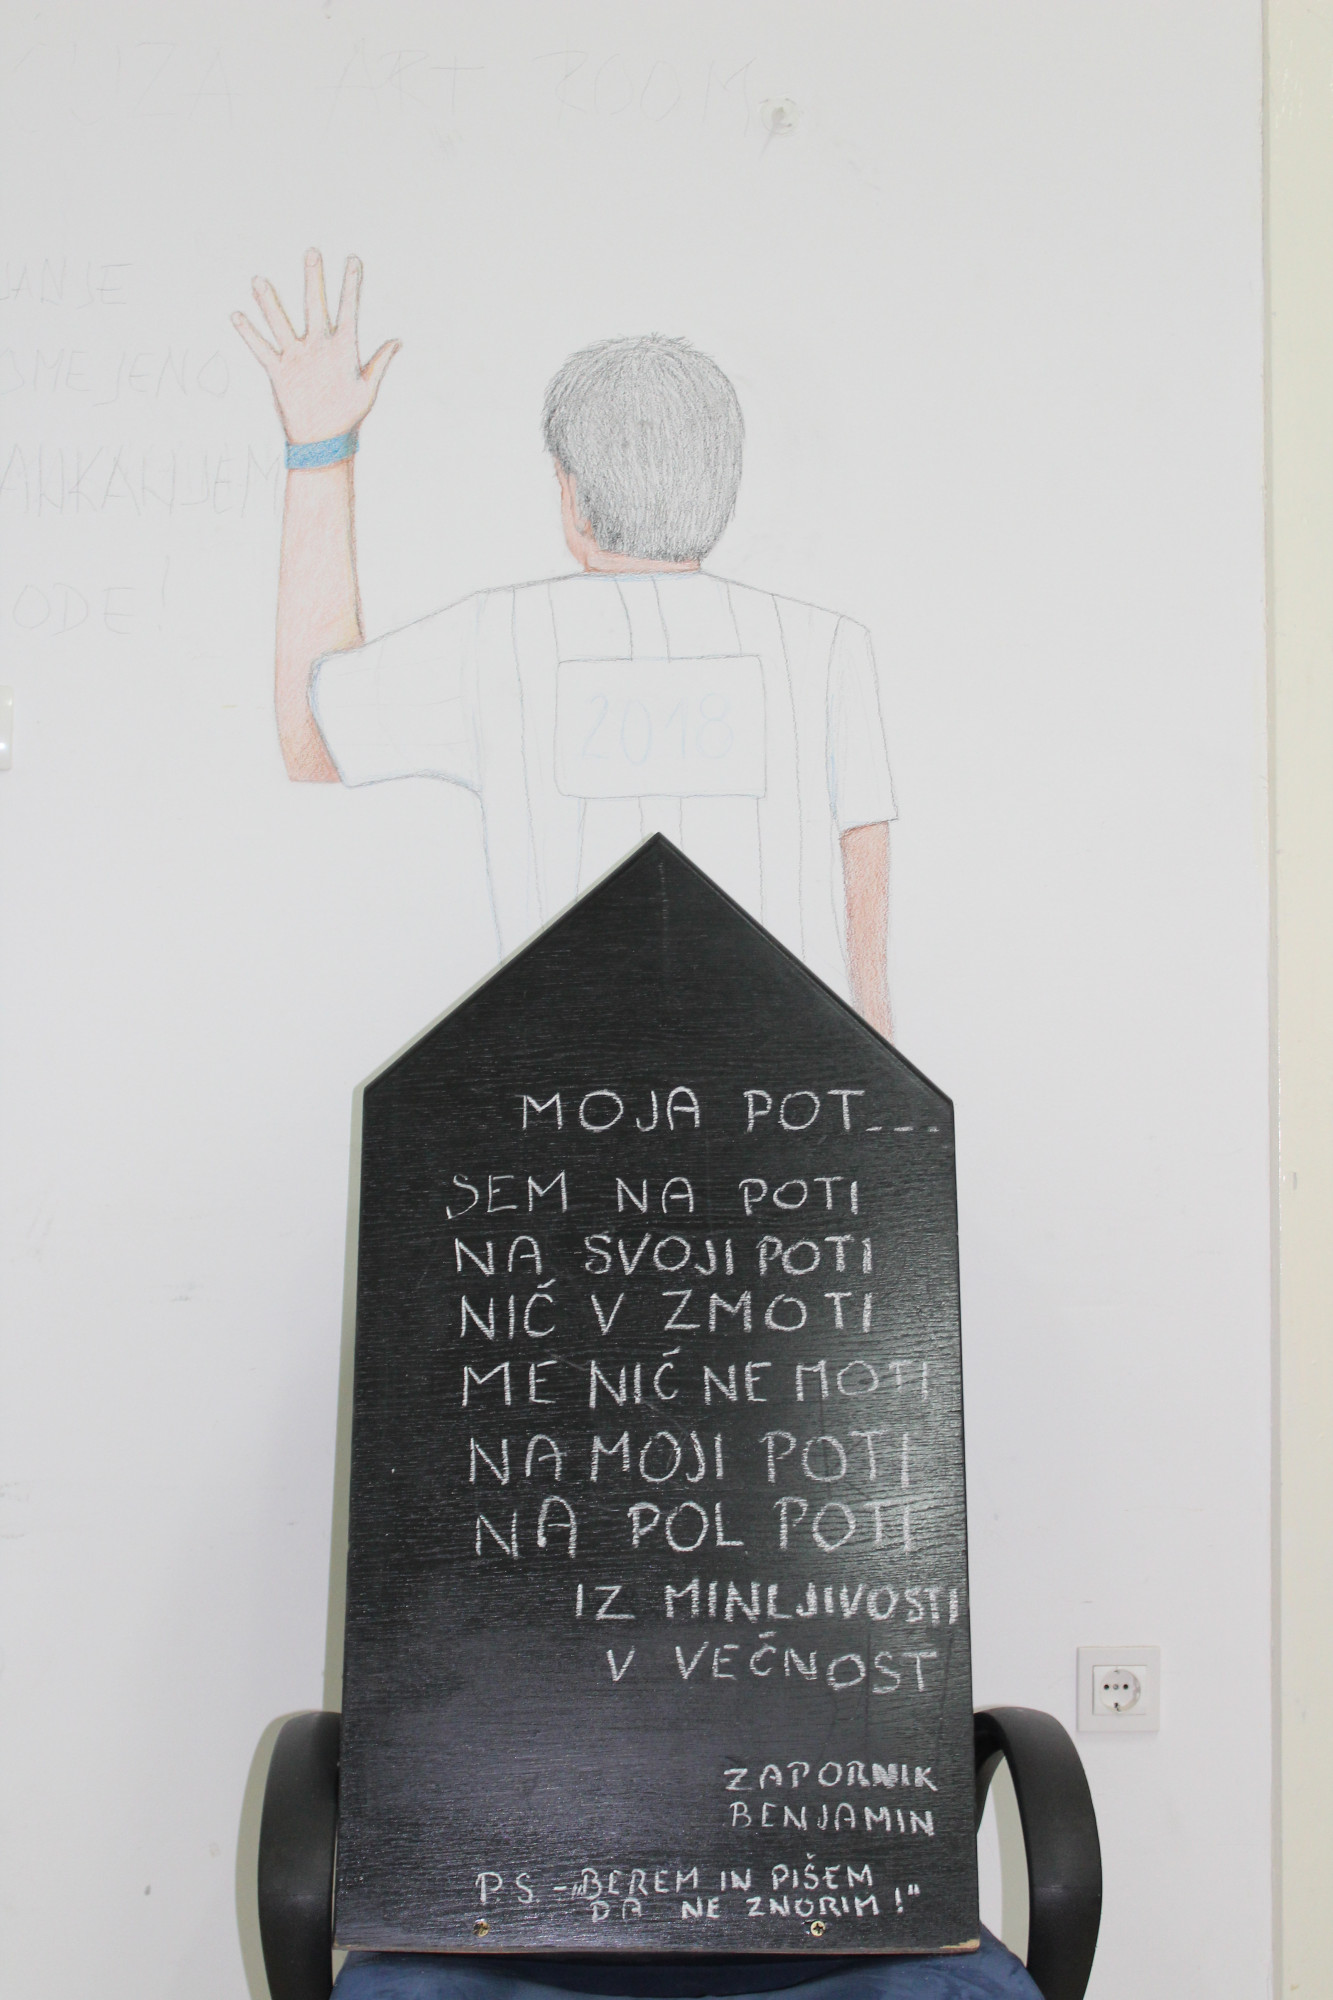 ART ROOM
OMEJENO
ODE!
2018
MOJA POT---
SEM NA POTI
NA SVOJI POTI
NIČ V ZMOTI
ME NIČ NE MOTI
NA MOJI POTI
NA POL POTI
IZ MINLJIVOSTI
V VEČNOST
ZAPORNIK
BENJAMIN
P.S. - „BEREM IN PIŠEM
DA NE ZNORIM!"